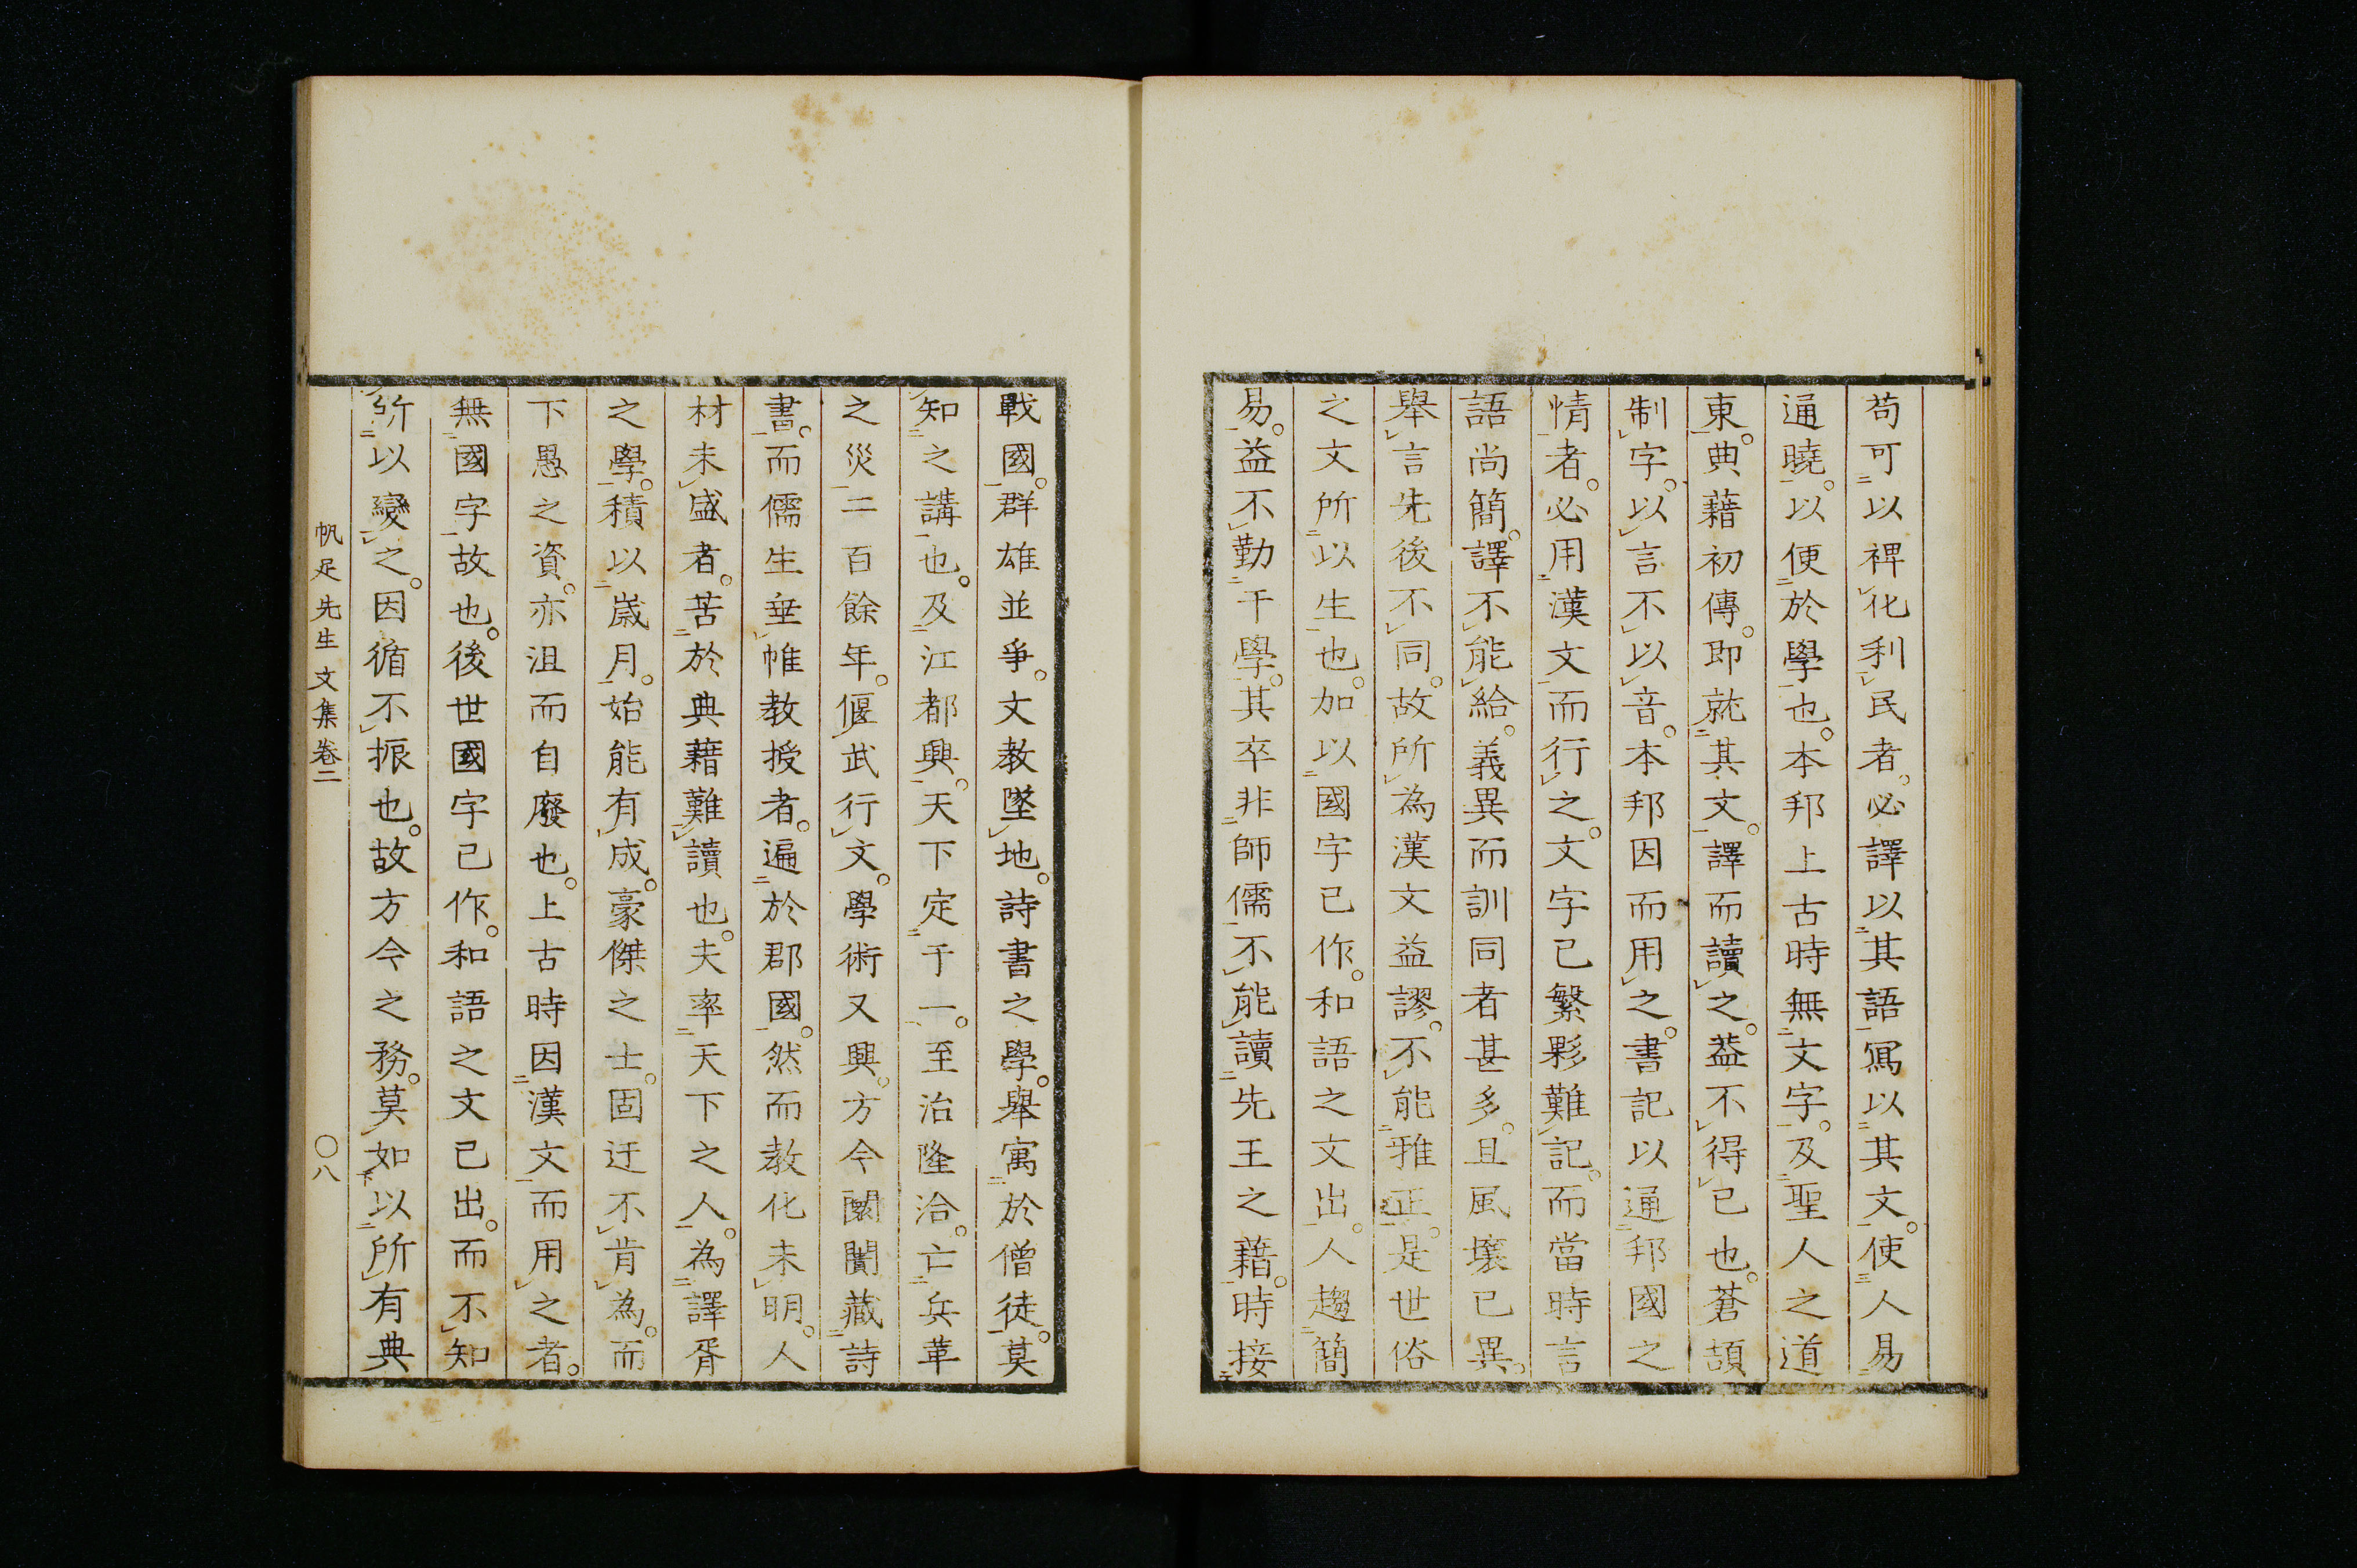 苟可以裨化利民者。必譯以其語寫以其文。使人易
通曉。以便於學也。本邦上古時無文字。及聖人之道
東。典藉初傳。即就其文。譯而讀之。葢不得已也。蒼頡
制字。以言不以音。本邦因而用之。書記以通邦國之
情者。必用漢文而行之。文字已繁夥難記。而當時言
語尚簡。譯不能給。義異而訓同者甚多。且風壤已異。
舉言先後不同。故所為漢文益謬。不能雅正。是世俗
之文所以生也。加以國字已作。和語之文出。人趨簡
易。益不勤干學。其卒非師儒不能讀先王之藉。時接
戰國。群雄並爭。文教墜地。詩書之學。舉寓於僧徒。莫
知之講也。及江都興。天下定于一。至治隆洽。亡兵革
之災二百餘年。偃武行文。學術又興。方今闤闠藏詩
書。而儒生垂帷教授者。遍於郡國。然而教化未明。人
材未盛者。苦於典藉難讀也。夫率天下之人。為譯胥
之學。積以歳月。始能有成。豪傑之士。固迂不肯為。而
下愚之資。亦沮而自廢也。上古時因漢文而用之者。
無國字故也。後世國字已作。和語之文已出。而不知
所以變之。因循不振也。故方今之務。莫如以所有典
帆足先生文集卷二
〇八